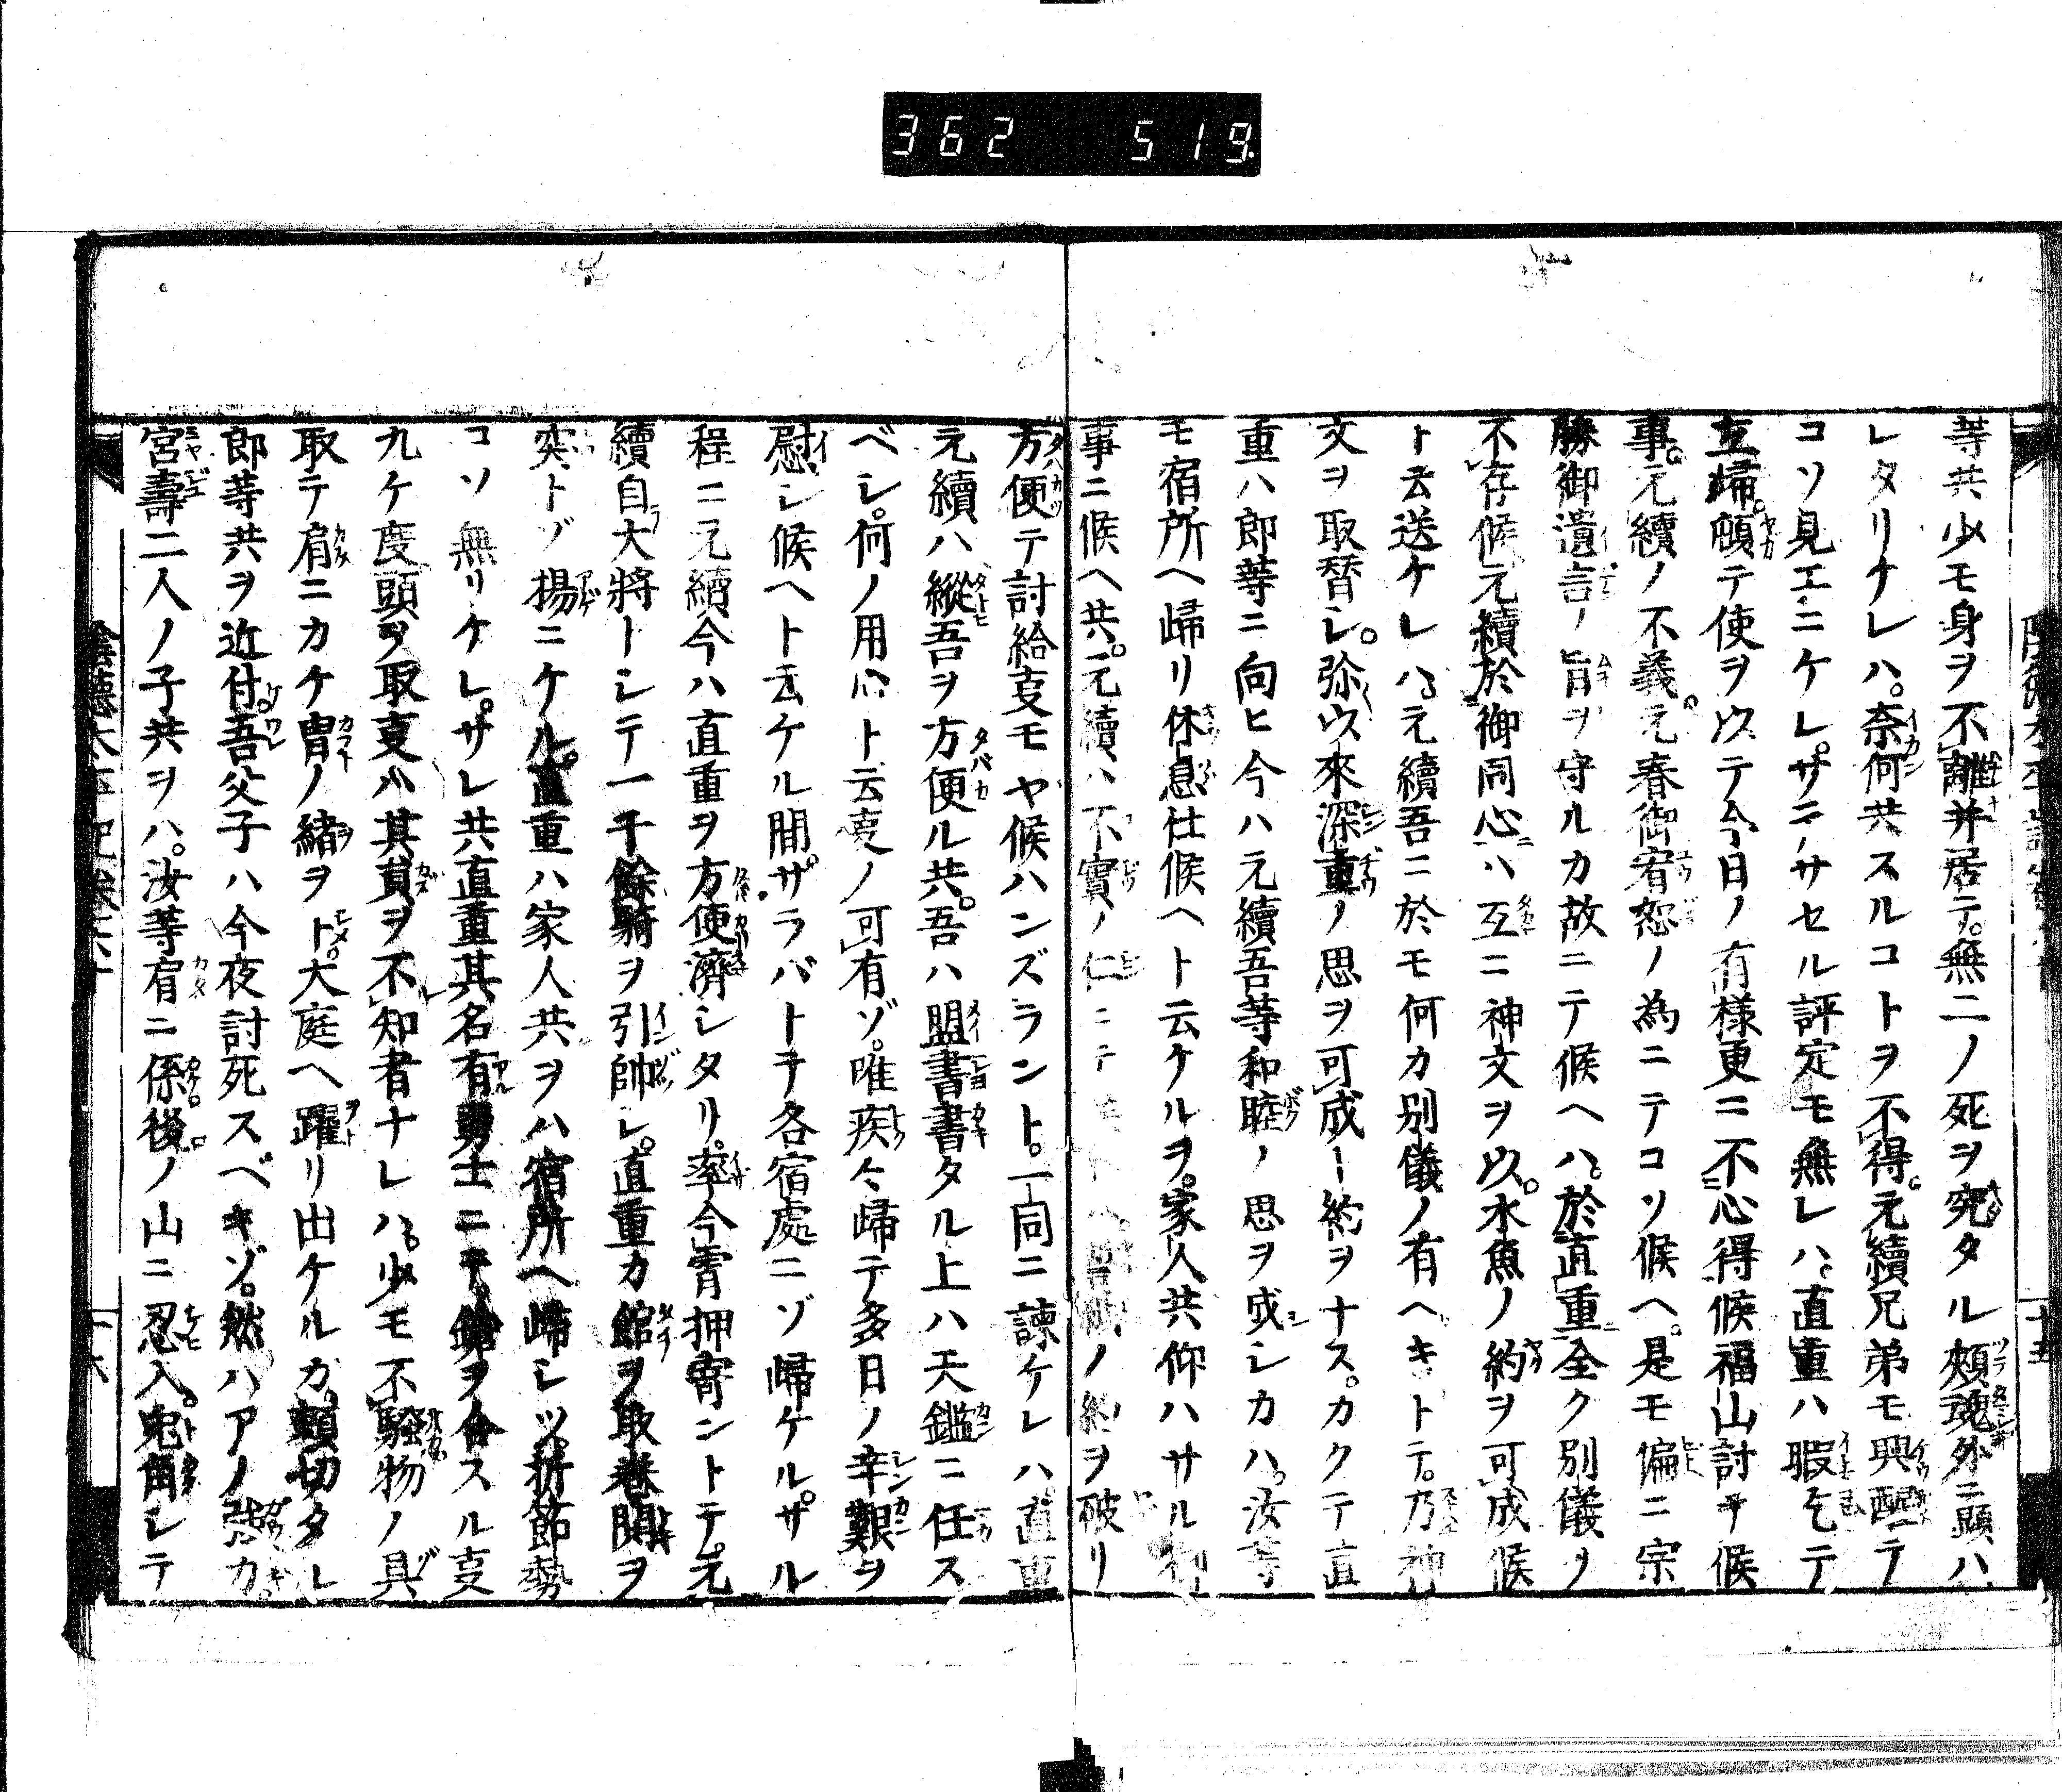 362 519
等共少モ身ヲ不離並居テ。無二ノ死ヲ究タル頬魂外ニ顕ハ
レタリケレハ。奈何共スルコトヲ不得。元續兄弟モ興醒テ
コソ見エニケレ。サテサセル評定モ無レハ。直重ハ暇乞テ
立歸。頓テ使ヲ以テ今日ノ有様更ニ不心得候福山討チ候
事。元續ノ不義。元春御宥恕ノ為ニテコソ候ヘ。是モ偏ニ宗
勝御遺言ノ旨ヲ守ルカ故ニテ候ヘハ。於直重全ク別儀ヲ
不存候元續於御同心ハ互ニ神文ヲ以。水魚ノ約ヲ可成候
ト云送ケレハ。元續吾ニ於モ何カ別儀ノ有ヘキトテ。乃神
文ヲ取替シ。弥以來深重ノ思ヲ可成ノ約ヲナス。カクテ直
重ハ郎等ニ向ヒ今ハ元續吾等和睦ノ思ヲ成シカハ。汝等
モ宿所ヘ歸リ休息仕候ヘト云ケルヲ。家人共仰ハサル
事ニ候ヘ共。元續ハ不實ノ仁ニテ ノ約ヲ破リ
方便テ討給叓モヤ候ハンズラント。一同ニ諫ケレハ。直重
元續ハ縱吾ヲ方便ル共。吾ハ盟書書タル上ハ天鑑ニ任ス
ベシ。何ノ用心ト云叓ノ可有ゾ。唯疾々歸テ多日ノ辛艱ヲ
慰シ候ヘト云ケル間。サラバトテ各宿處ニゾ歸ケル。サル
程ニ元續今ハ直重ヲ方便濟シタリ。率今宵押寄ントテ。元
續自大將トシテ一千餘騎ヲ引帥シ。直重カ館ヲ取巻鬨ヲ
突トゾ揚ニケル。直重ハ家人共ヲハ宿所ヘ歸シツ。折節勢
コソ無リケレ。サレ共直重其名有勇士ニテ。鎗ヲ合スル叓
九ケ度頭ヲ取叓ハ其員ヲ不知者ナレハ。少モ不騒物ノ具
取テ肩ニカケ冑ノ緒ヲト。大庭ヘ躍リ出ケルカ。頼切タレ
郎等共ヲ近付。吾父子ハ今夜討死スベキゾ。然ハアノ強カ。
宮壽二人ノ子共ヲハ。汝等肩ニ係後ノ山ニ忍入。兎角シテ